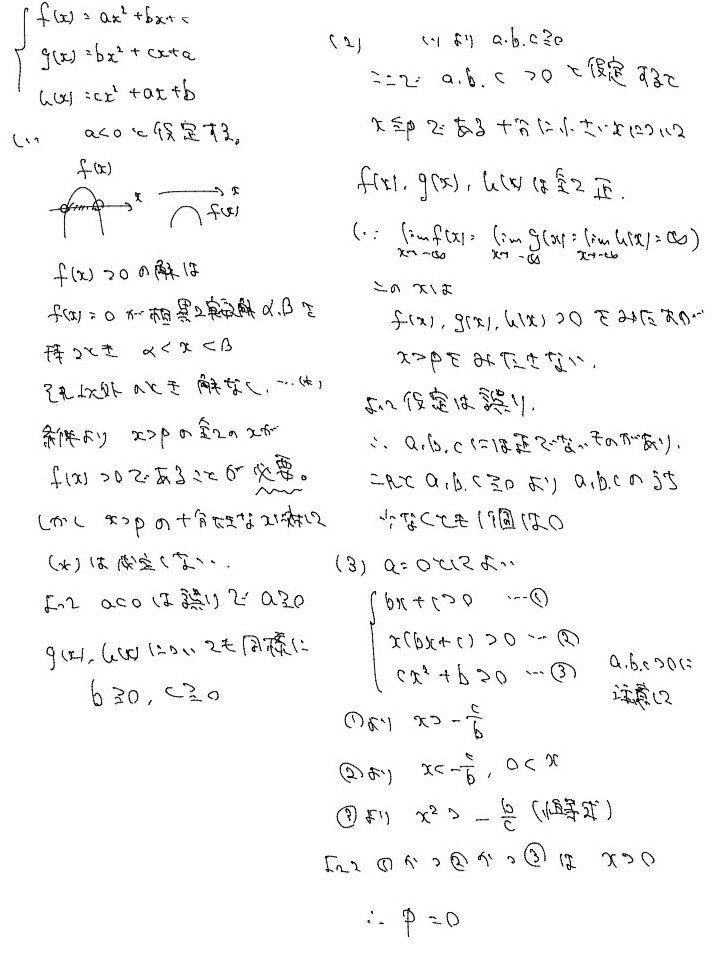 f(x) = ax² + bx + c
g(x) = bx² + cx + a
h(x) = cx² + ax + b
(1) a<0と仮定する。
f(x)
x
x
f(x)
f(x)>0の解は
f(x)=0が相異2実数解α,βを
持つとき α<x<β
それ以外のとき 解なし …(*)
条件より x>pの全てのxが
f(x)>0であることが必要。
しかし x>pの十分大きなxに対して
(*)は成立しない.
よって a<0は誤りで a≧0
g(x), h(x)についても同様に
b≧0, c≧0
(2) (1)より a.b.c≧0
ここで a.b.c >0と仮定すると
x≦pである十分に小さいxについて
f(x), g(x), h(x)は全て正.
(∵ lim f(x) = lim g(x) = lim h(x) = ∞)
x→-∞ x→-∞ x→-∞
このxは
f(x), g(x), h(x) >0をみたすが
x>pをみたさない.
よって仮定は誤り.
∴ a.b.cには正でないものがあり,
これとa.b.c≧0より a.b.cのうち
少なくとも1個は0
(3) a=0としてよい
bx+c>0 …①
x(bx+c)>0 …②
cx²+b>0 …③
a.b.c>0に
注意して
①より x>-c/b
②より x<-c/b, 0<x
③より x²>-b/c (恒等式)
よって①かつ②かつ③は x>0
∴ p=0